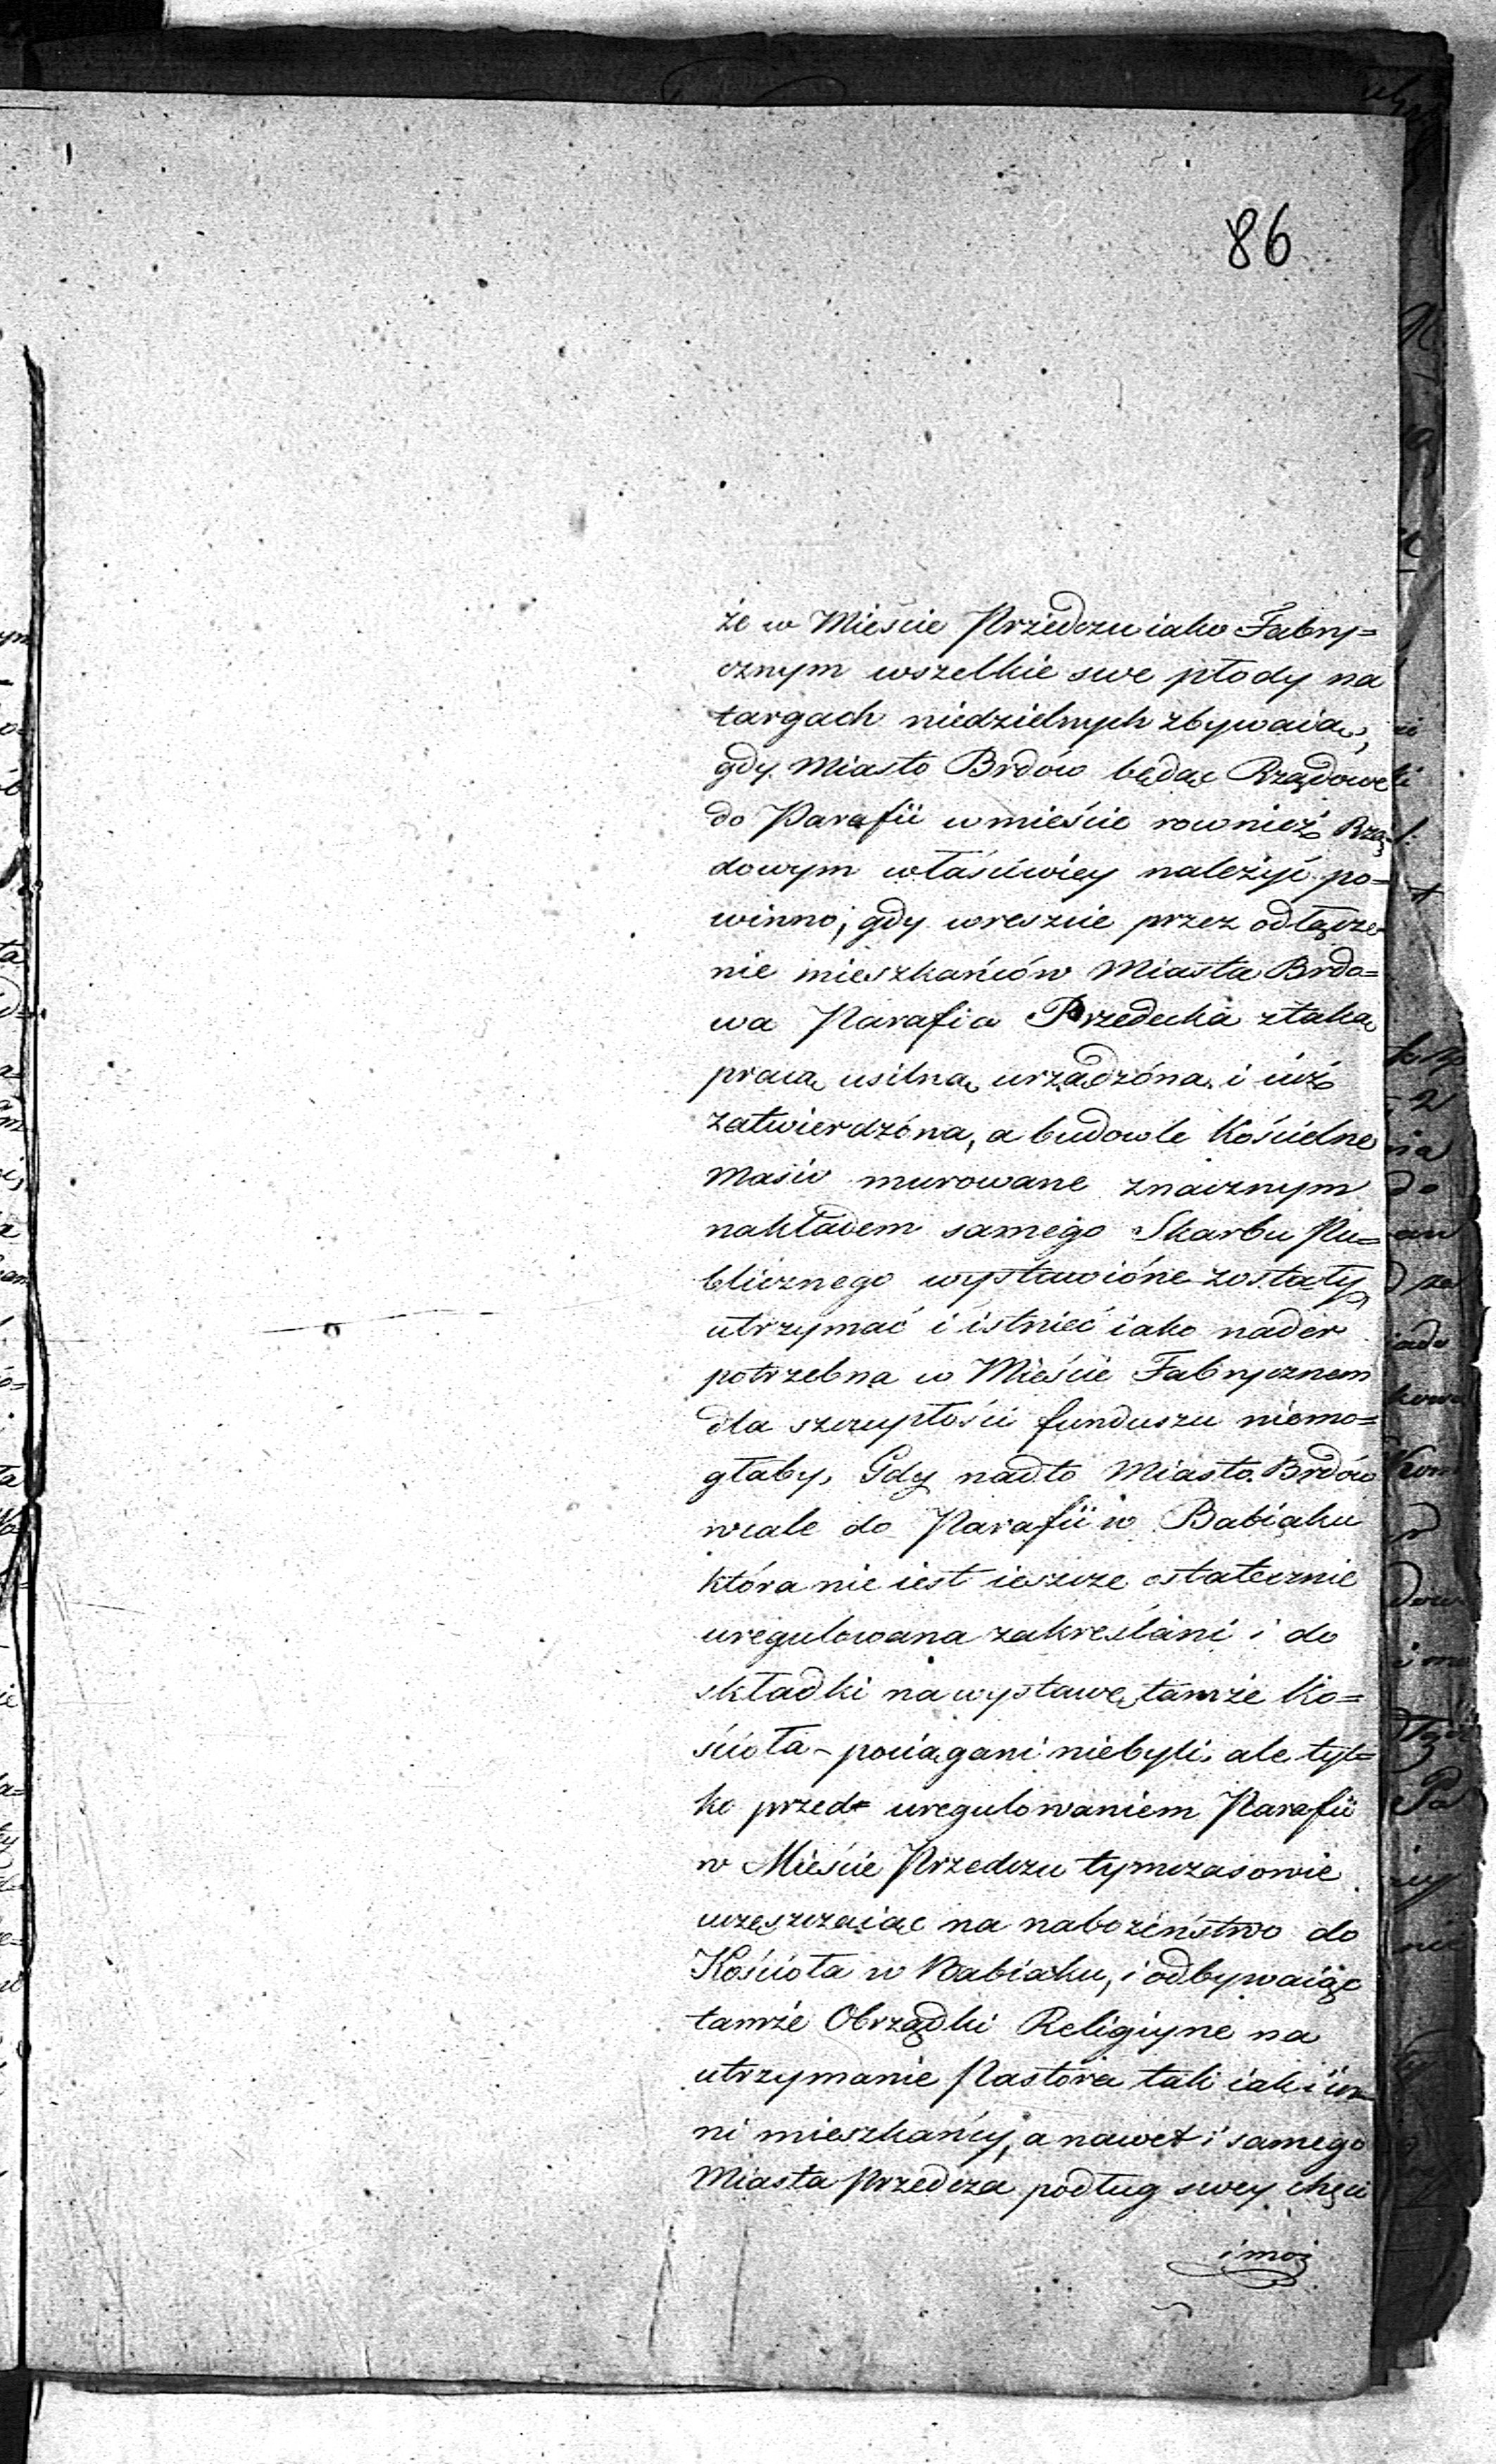 86
że w Mieście Przedczu iako Fabry=
cznym wszelkie swe płody na
targach niedzielnych zbywaią,
gdy Miasto Brdów będąc Rządowe
do Parafii w mieście rownież Rzą
dowym właściwiey należyć po=
winno, gdy wreszcie przez odłącze=
nie mieszkańców Miasta Brdo=
wa Parafia Przedecka z taką
pracą usilną urządzóna i iuż
zatwierdzóna, a budowle Kościelne
masiv murowane znacznym
nakładem samego Skarbu Pu=
blicznego wystawióne zostały
utrzymać i istnieć iako nader
potrzebna w Mieście Fabrycznem
dla szczupłości funduszu niemo=
głaby, Gdy nadto Miasto Brdów
wcale do Parafii w Babiaku
która nie iest ieszcze ostatecznie
uregulowana zakreślani i do
składki na wystawę tamże Ko=
ścioła pociągani niebyli, ale tyl=
ko przed= uregulowaniem Parafii
w Mieście Przedczu tymczasowie
uczęszczaiąc na nabożeństwo do
Kościoła w Babiaku, i odbywaiąc
tamże Obrządki Religiyne na
utrzymanie Pastora tak iak i in=
ni mieszkańcy, a nawet i samego
Miasta Przedcza podług swey chęci
i moż